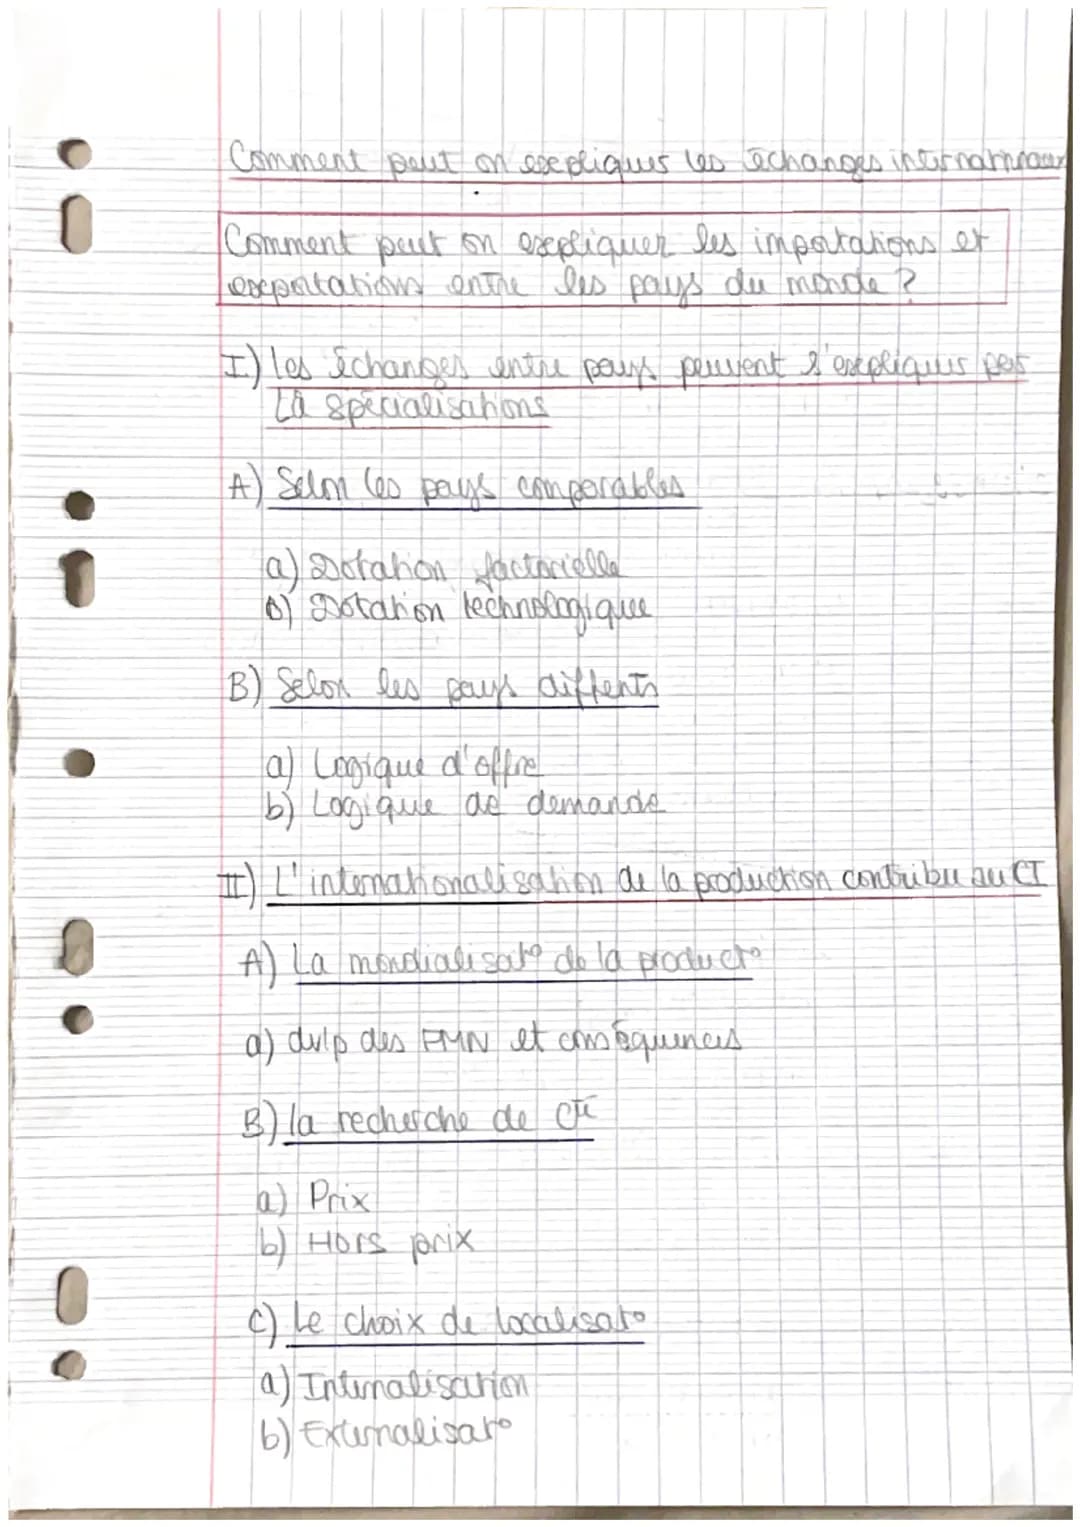 Comment peut on expliquer les échanges internationaux
Comment peut on expliquer les importations et
exportations entre les pays du monde ?
I) les échanges entre pays peuvent s'expliquer par
la spécialisations
A) Selon les pays comparables
a) Dotation factorielle
b) Dotation technologique
B) Selon les pays diffents
a) Logique d'offre
b) Logique de demande
II) L'internationalisation de la production contribu au CI
A) La mondialisat° de la product°
a) dvlp des FMN et conséquences
B) la recherche de
a) Prix
b) Hors prix
C) Le choix de localisat°
a) Internalisation
b) Externalisat°